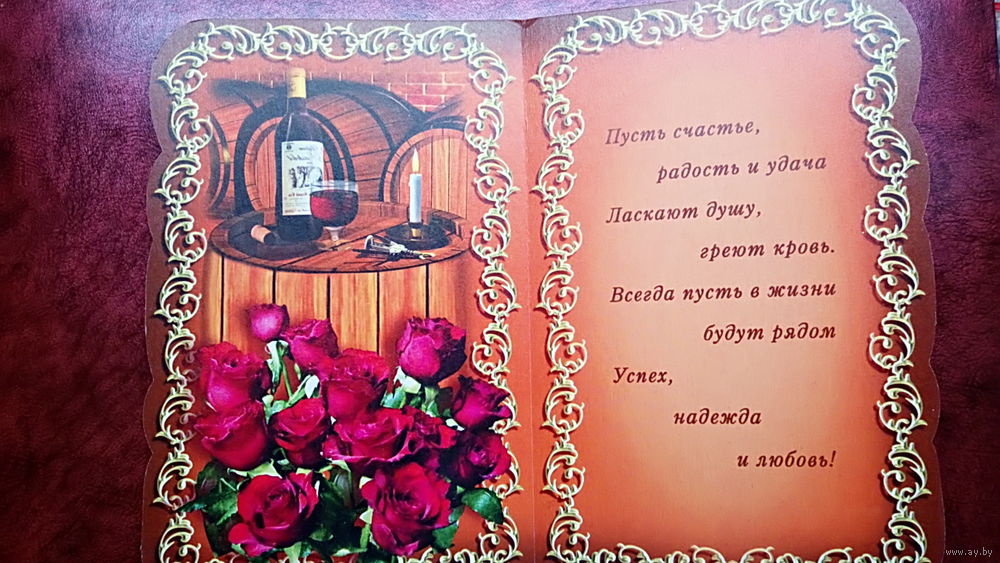 Пусть счастье,
радость и удача
Ласкают душу,
греют кровь.
Всегда пусть в жизни
будут рядом
Успех,
надежда
и любовь!
www.ay.by